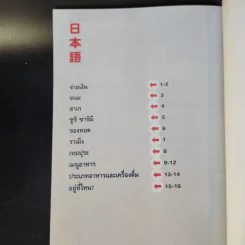 日本語
จ่ายเงิน 1-2
ขนม 3
สาเก 4
ซูชิ ซาชิมิ 5
ของทอด 6
ราเม็ง 7
เทมปุระ 8
เมนูอาหาร 9-12
ประเภทอาหารและเครื่องดื่ม 13-14
อยู่ที่ไหน? 15-16